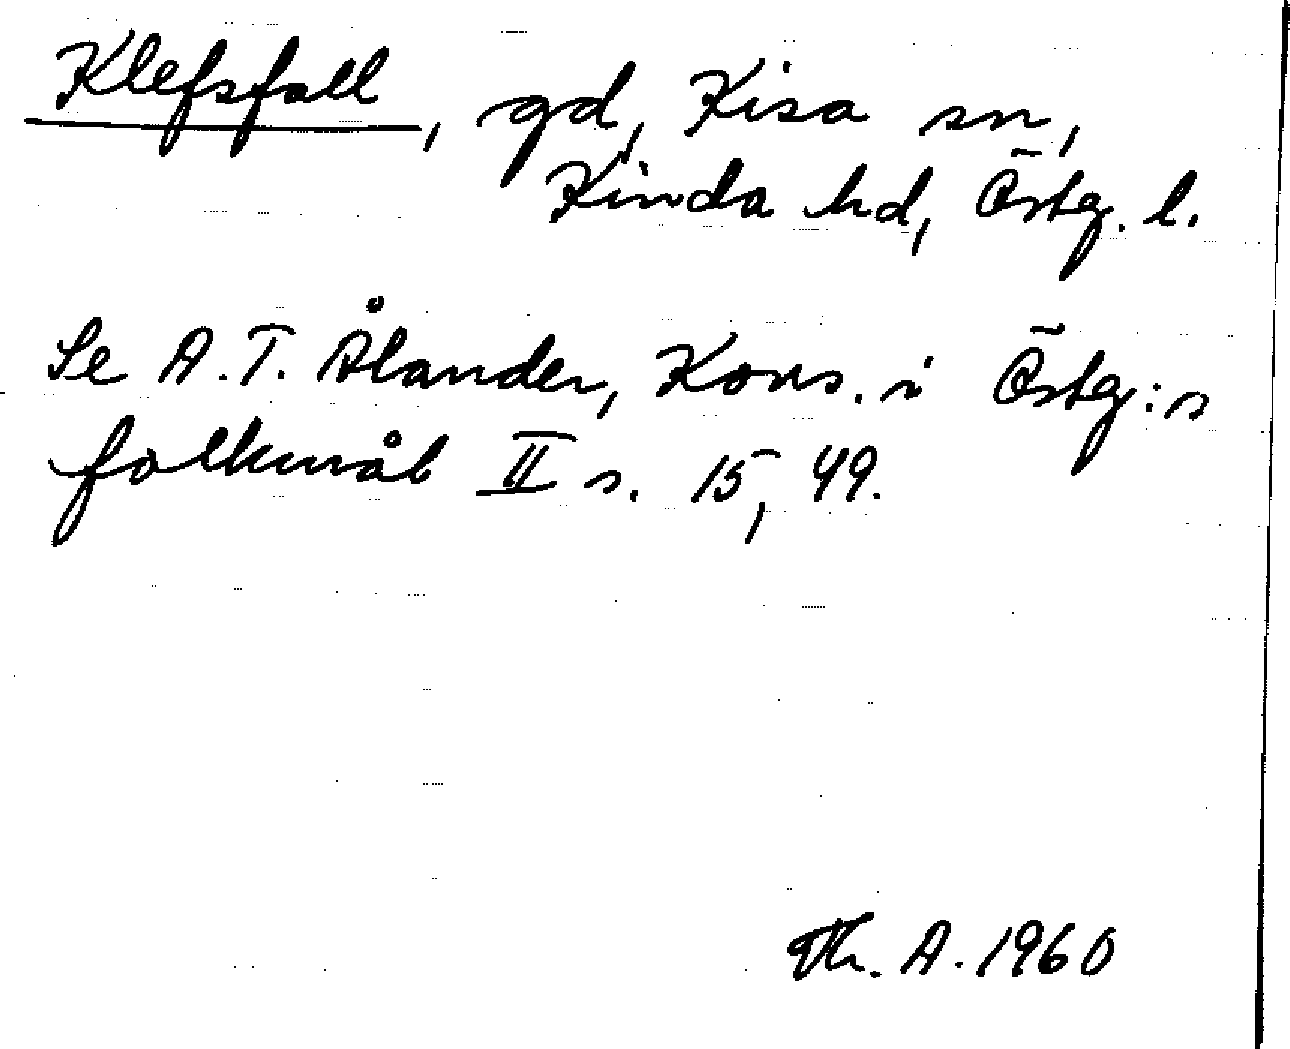 Klefsfall, gd, Kisa sn,
Kinda hd, Östg. l.
Se A.T. Ålander, Kons. i Östg:s
folkmål II s. 15, 49.
Th. A. 1960